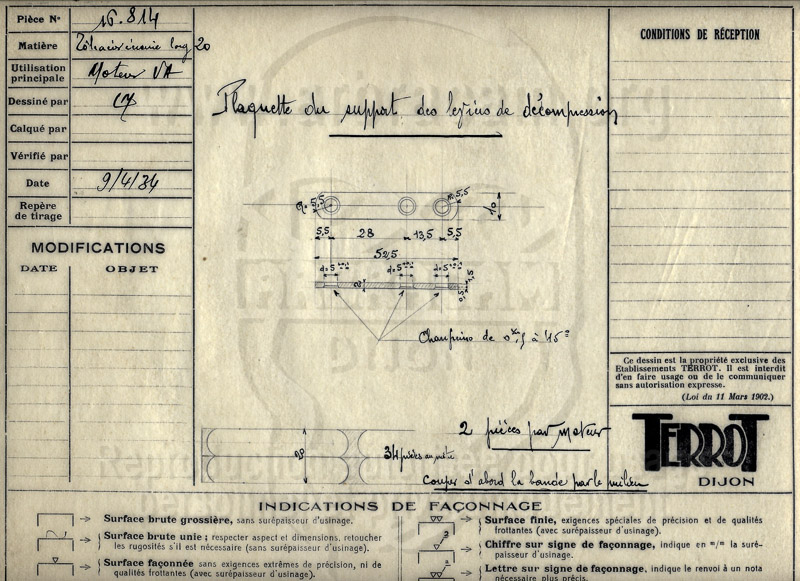 Pièce N° 16.814
Matière Tôle acier inoxie long 20
Utilisation principale Moteur VA
Dessiné par
Calqué par
Vérifié par
Date 9/4/34
Repère de tirage
MODIFICATIONS
DATE OBJET
Plaquette du support des leviers de décompression
5,5 5,5 10
5,5 28 13,5 5,5
52,5
d=5 d=5 d=5
Chanfreins de 0,5 à 45°
2 pièces par moteur
20 34 pièces au mètre
Couper d'abord la bande par le milieu
CONDITIONS DE RÉCEPTION
Ce dessin est la propriété exclusive des
Etablissements TERROT. Il est interdit
d'en faire usage ou de le communiquer
sans autorisation expresse.
(Loi du 11 Mars 1902.)
TERROT
DIJON
INDICATIONS DE FAÇONNAGE
Surface brute grossière, sans surépaisseur d'usinage.
Surface brute unie ; respecter aspect et dimensions, retoucher
les rugosités s'il est nécessaire (sans surépaisseur d'usinage).
Surface façonnée sans exigences extrêmes de précision, ni de
qualités frottantes (avec surépaisseur d'usinage).
Surface finie, exigences spéciales de précision et de qualités
frottantes (avec surépaisseur d'usinage).
Chiffre sur signe de façonnage, indique en m/m la suré-
paisseur d'usinage.
Lettre sur signe de façonnage, indique le renvoi à un nota
nécessaire plus précis.